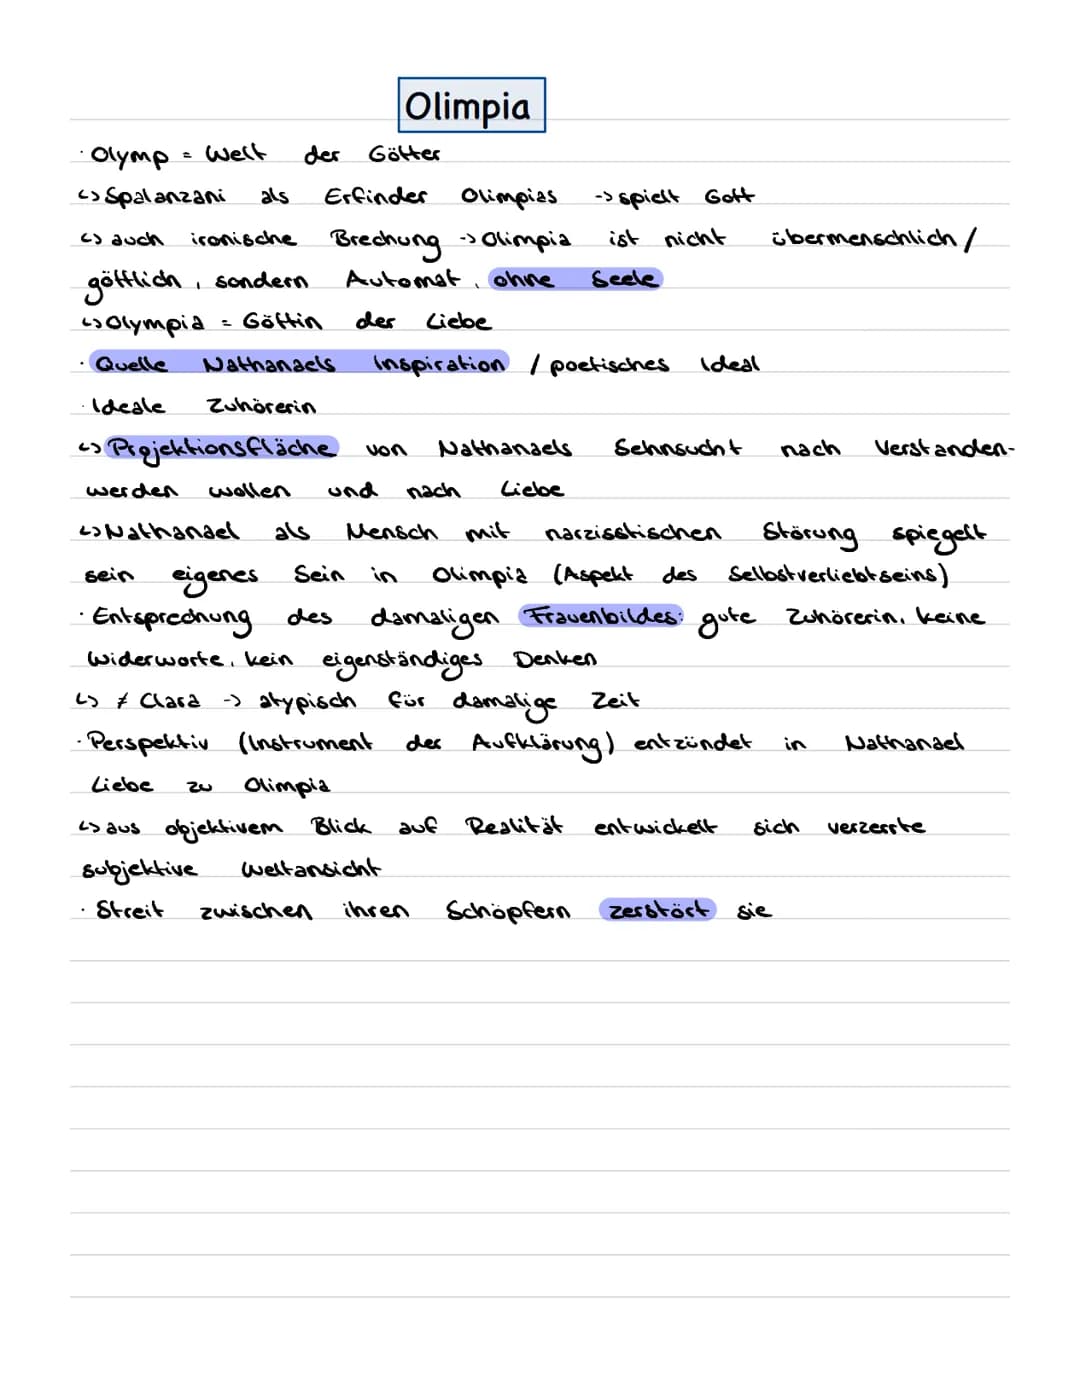 Olimpia
· Olymp = Welt der Götter
↳ Spalanzani als Erfinder Olimpias -> spielt Gott
↳ auch ironische Brechung -> Olimpia ist nicht übermenschlich /
göttlich, sondern Automat, ohne Seele
↳ Olympia = Göttin der Liebe
· Quelle Nathanaels Inspiration / poetisches Ideal
· Ideale Zuhörerin
↳ Projektionsfläche von Nathanaels Sehnsucht nach Verstanden-
werden wollen und nach Liebe
↳ Nathanael als Mensch mit narzisstischen Störung spiegelt
sein eigenes Sein in Olimpia (Aspekt des Selbstverliebtseins)
· Entsprechung des damaligen Frauenbildes: gute Zuhörerin, keine
Widerworte, kein eigenständiges Denken
↳ ≠ Clara -> atypisch für damalige Zeit
· Perspektiv (Instrument der Aufklärung) entzündet in Nathanael
Liebe zu Olimpia
↳ aus objektivem Blick auf Realität entwickelt sich verzerrte
subjektive Weltansicht
· Streit zwischen ihren Schöpfern zerstört sie